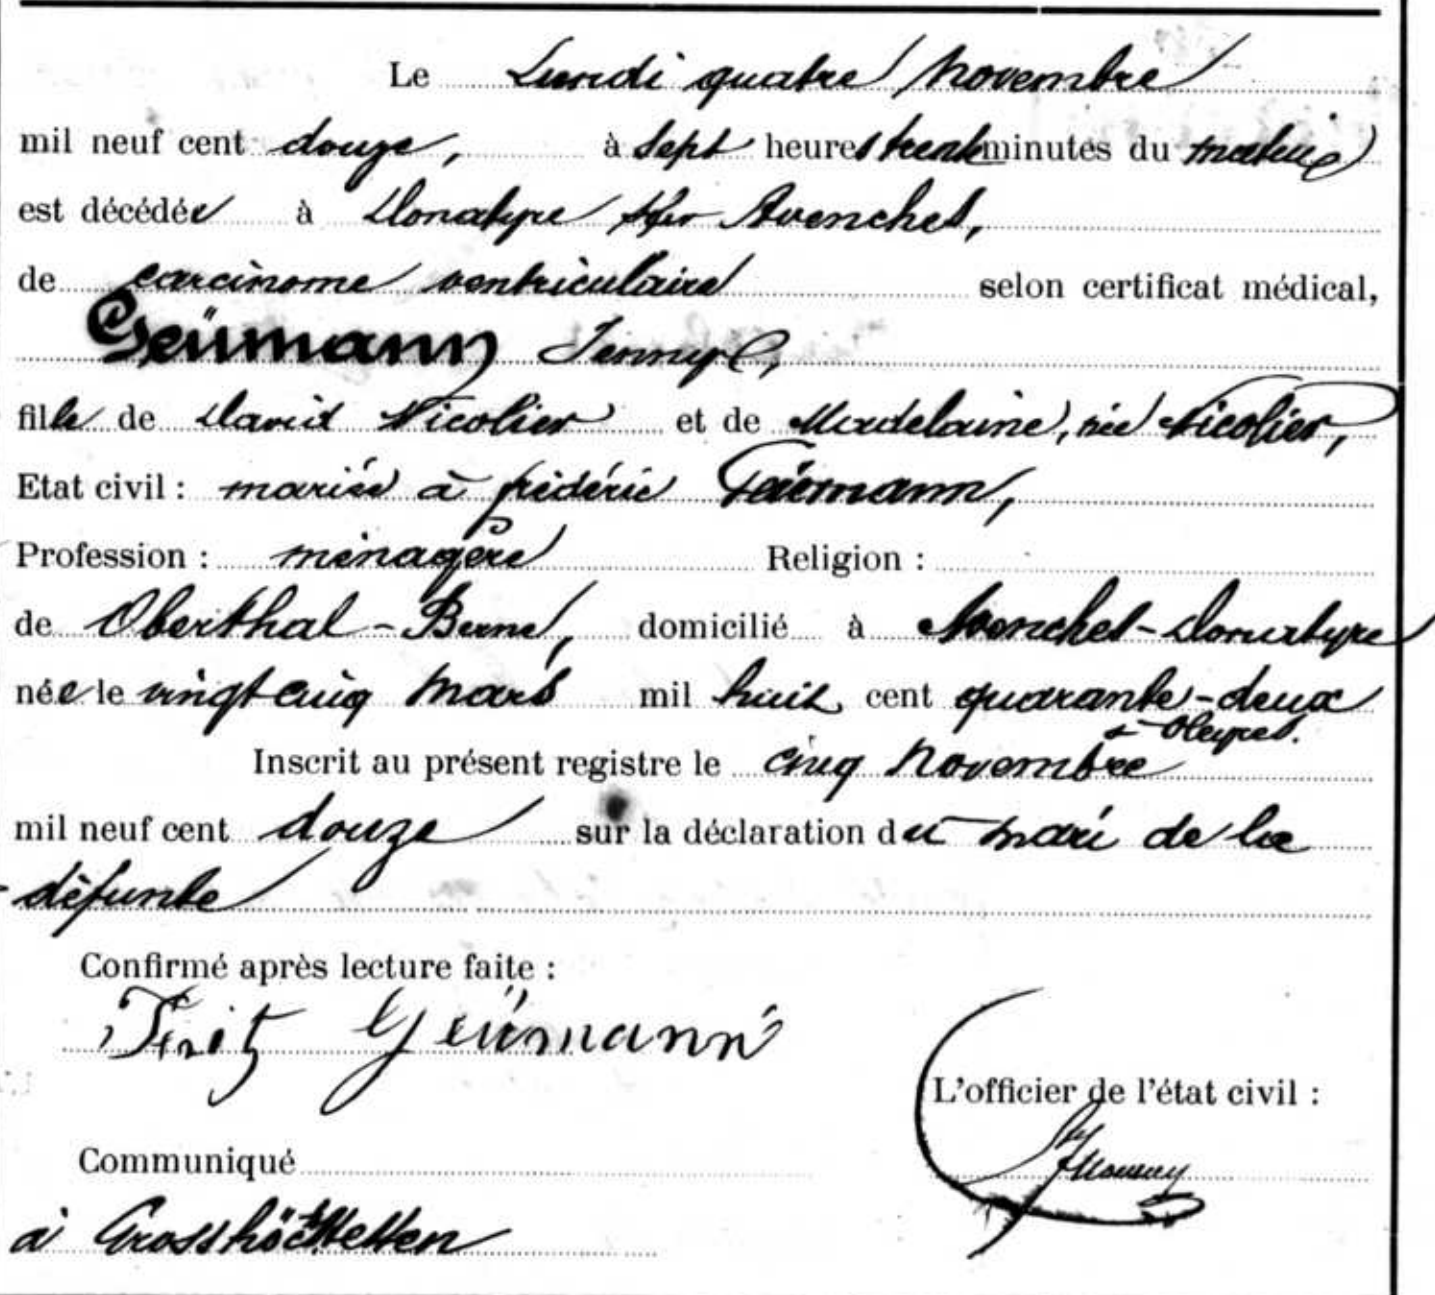 Le Lundi quatre Novembre
mil neuf cent douze, à Sept heures trente minutes du matin
est décédée à Donatyre sur Avenches,
de carcinome ventriculaire selon certificat médical,
Geümann Jenny
fille de David Nicolier et de Madelaine, née Nicolier,
Etat civil : mariée à frédéric Geümann,
Profession : ménagère Religion :
de Oberthal-Berne, domicilié à Avenches-Donatyre
née le vingt cinq Mars mil huit cent quarante-deux
à Oleyres.
Inscrit au présent registre le cinq Novembre
mil neuf cent douze sur la déclaration du mari de la
défunte
Confirmé après lecture faite :
Fritz Geümann
L'officier de l'état civil :
Communiqué
à Grosshöchstetten